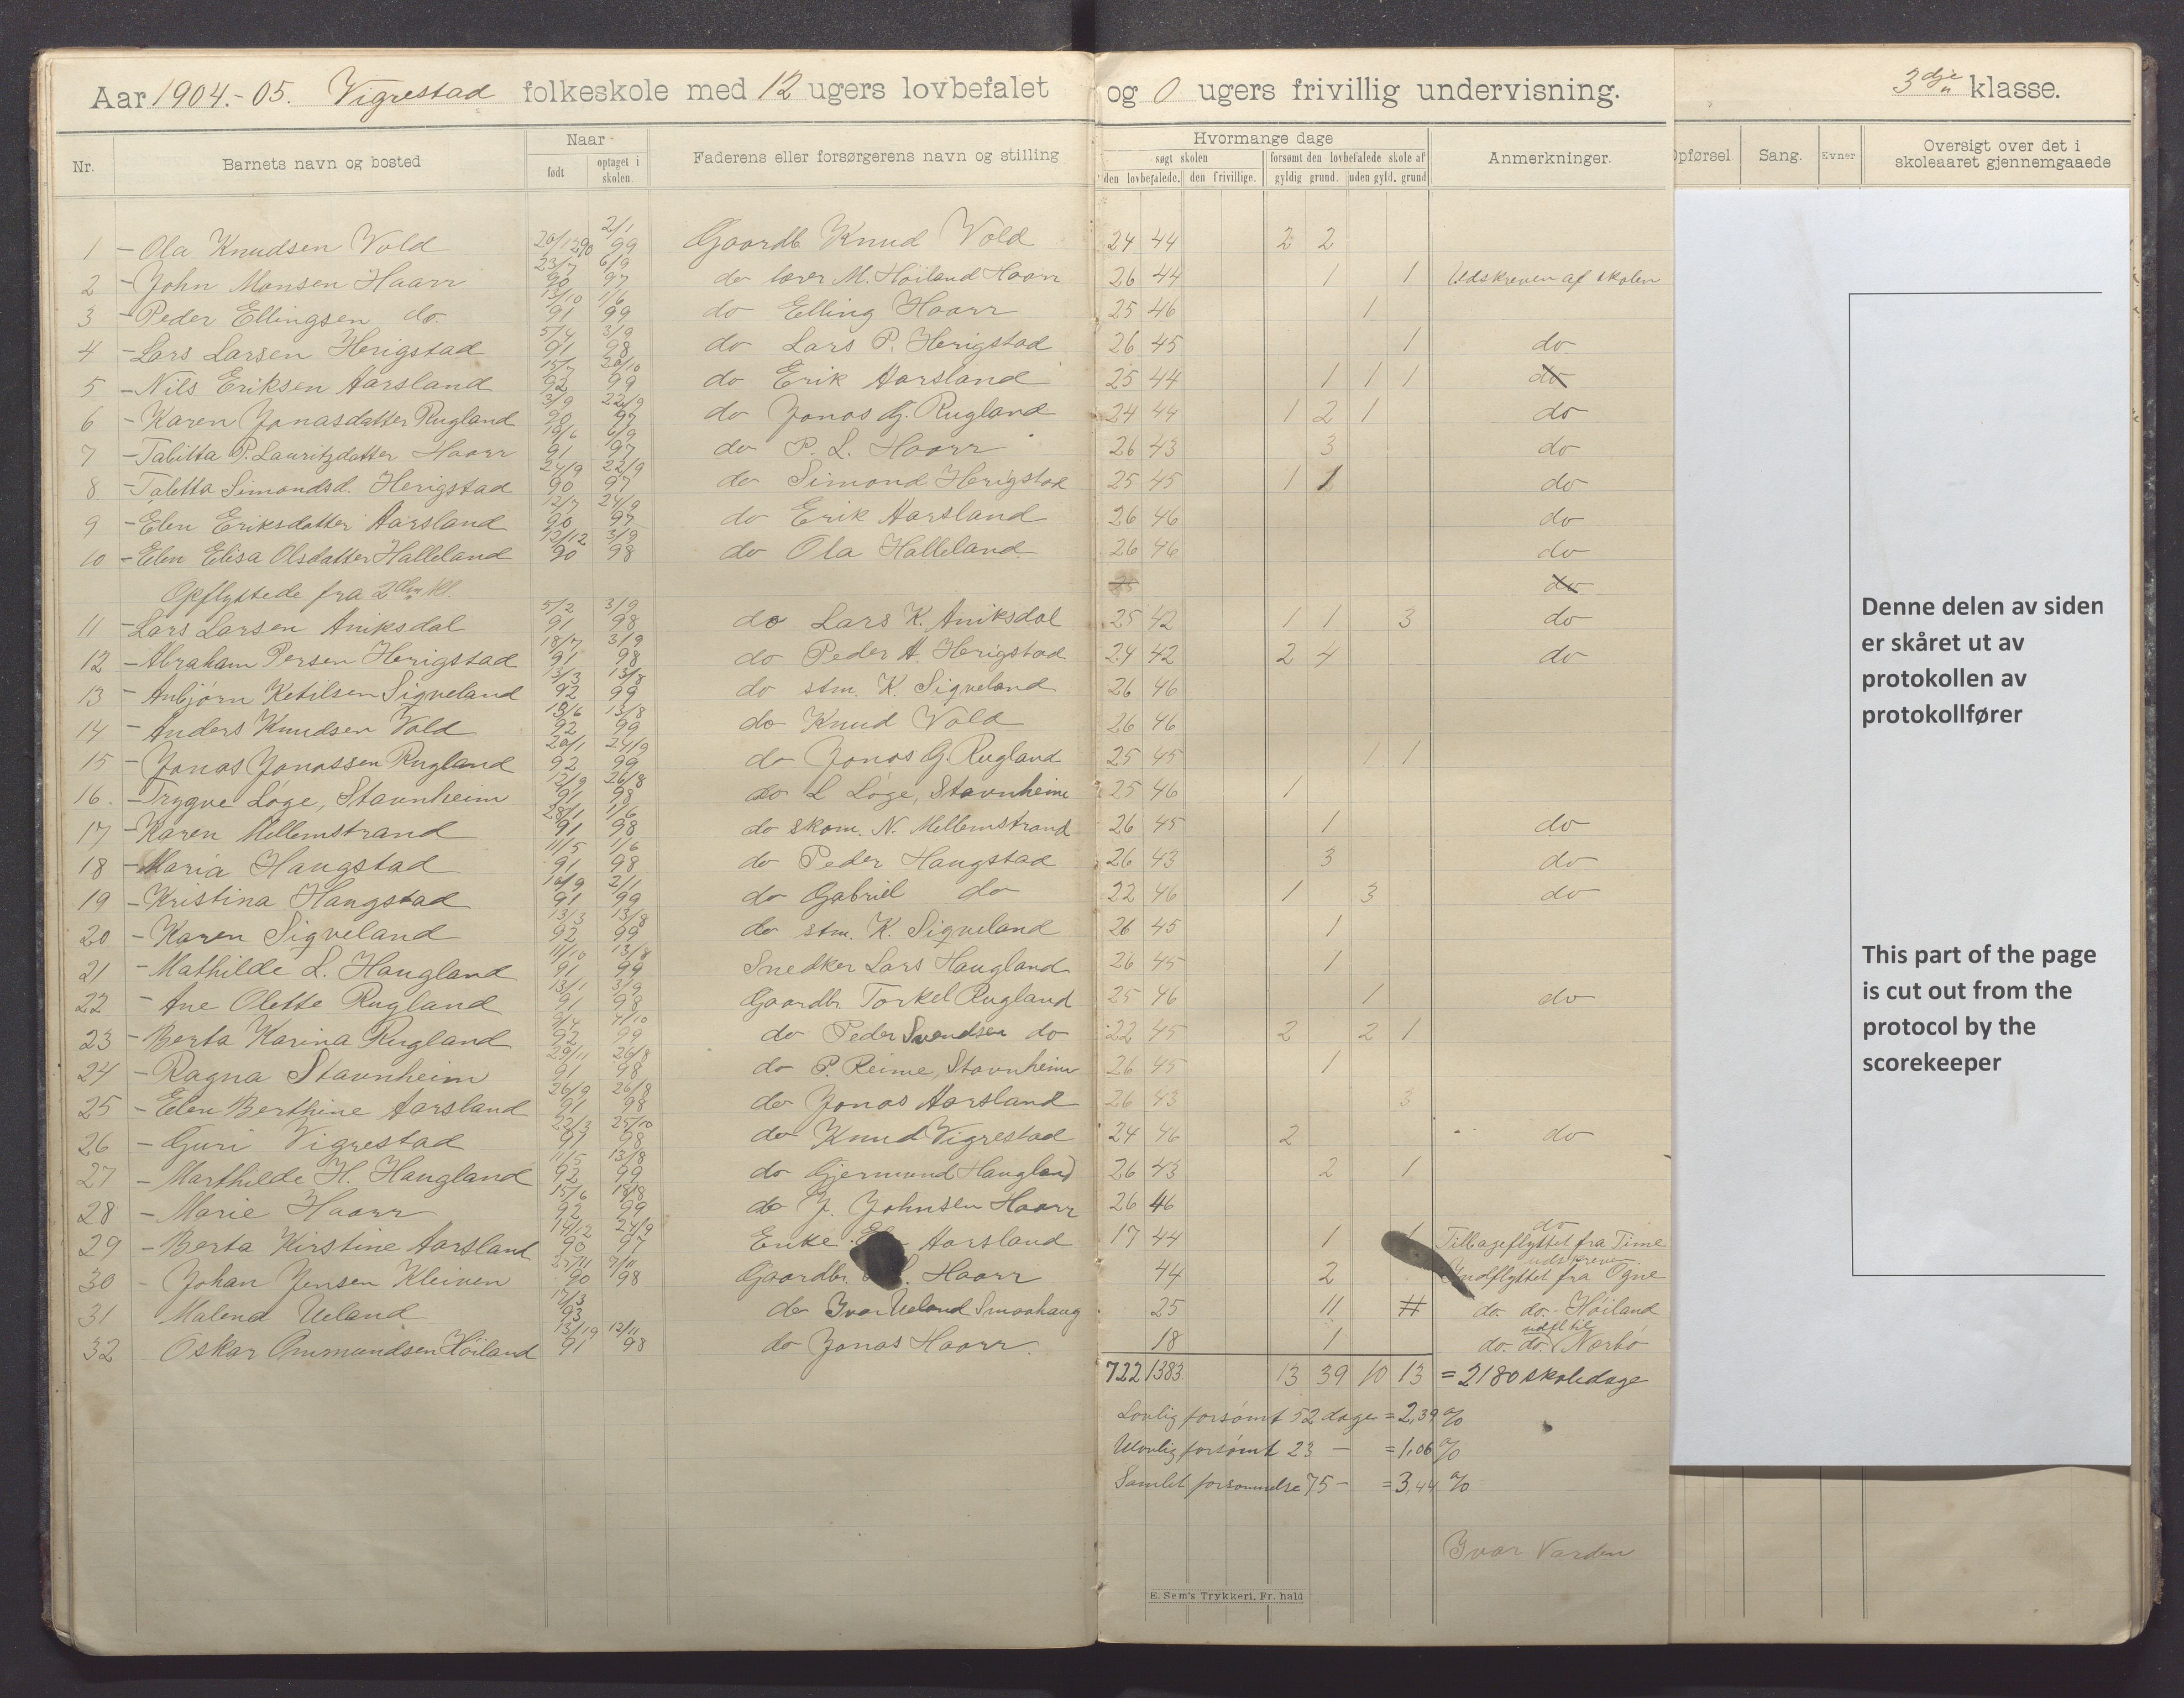 Aar 1904.-05. Vigrestad folkeskole med 12 ugers lovbefalet og 0 ugers frivillig undervisning. 3dje klasse.
Nr. Barnets navn og bosted Naar Faderens eller forsørgerens navn og stilling Hvormange dage Anmerkninger. Opførsel. Sang. Evner Oversigt over det i skoleaaret gjennemgaaede
født optaget i skolen. søgt skolen forsømt den lovbefalede skole af
den lovbefalede. den frivillige. gyldig grund. uden gyld. grund
1 - Ola Knudsen Vold 20/12 90 2/1 99 Gaardb. Knud Vold 24 44 2 2
2 - John Monsen Haarr 23/7 90 6/9 97 do lærer M. Høiland Haarr 26 44 1 1 Udskreven af skolen
3 - Peder Ellingsen do. 13/10 91 1/6 99 do Elling Haarr 25 46 1
4 - Lars Larsen Herigstad 5/4 91 3/9 98 do Lars P. Herigstad 26 45 1 do
5 - Nils Eriksen Aarsland 15/7 92 20/10 99 do Erik Aarsland 25 44 1 1 1 do
6 - Karen Jonasdatter Rugland 3/9 90 22/9 97 do Jonas G. Rugland 24 44 1 2 1 do
7 - Talitta P. Lauritzdatter Haarr 19/6 91 6/9 97 do P. L. Haarr 26 43 3 do
8 - Taletta Simondsd. Herigstad 24/9 90 22/9 97 do Simond Herigstad 25 45 1 1 do
9 - Elen Eriksdatter Aarsland 12/7 90 24/9 97 do Erik Aarsland 26 46 do
10 - Elen Elisa Olsdatter Halleland 12/12 90 3/9 98 do Ola Halleland 26 46 do
Opflyttede fra 2den kl. do
11 - Lars Larsen Aniksdal 5/2 91 3/9 98 do Lars K. Aniksdal 25 42 1 1 3 do
12 - Abraham Persen Herigstad 18/7 91 3/9 98 do Peder A. Herigstad 24 42 2 4 do
13 - Anbjørn Ketilsen Sigveland 13/3 92 13/8 99 do stm. K. Sigveland 26 46
14 - Anders Knudsen Vold 19/6 92 13/8 99 do Knud Vold 26 46
15 - Jonas Jonassen Rugland 20/1 92 24/9 99 do Jonas G. Rugland 25 45 1 1
16. - Trygve Løge, Stavnheim 12/9 91 26/8 98 do L Løge, Stavnheim 25 46 1
17 - Karen Mellemstrand 28/1 91 1/6 98 do skom. N. Mellemstrand 26 45 1 do
18 - Maria Haugstad 11/5 91 1/6 98 do Peder Haugstad 26 43 3 do
19 - Kristina Haugstad 10/9 91 2/11 99 do Gabriel do 22 46 1 3 do
20 - Karen Sigveland 13/3 92 13/8 99 do stm. K. Sigveland 26 45 1
21 - Mathilde L. Haugland 11/10 91 13/8 99 Snedker Lars Haugland 26 45 1
22 - Ane Olette Rugland 13/1 91 3/9 98 Gaardbr. Torkel Rugland 25 46 1 do
23 - Berta Karina Rugland 9/4 92 4/10 99 do Peder Svendsen do 22 45 2 2 1
24 - Ragna Stavnheim 29/11 91 26/8 98 do P. Reime, Stavnheim 26 45 1
25 - Elen Berthine Aarsland 26/9 91 26/8 98 do Jonas Aarsland 26 43 3
26 - Guri Vigrestad 22/3 91 25/10 98 do Knud Vigrestad 24 46 2 do
27 - Marthilde H. Haugland 11/5 92 13/8 99 do Gjermund Haugland 26 43 2 1
28 - Marie Haarr 15/6 92 18/8 99 do J. Johnsen Haarr 26 46
29 - Berta Kirstine Aarsland 14/12 90 24/9 97 Enke Aarsland 17 44 1 1 do Tilbageflyttet fra Time
30 - Johan Jensen Kleiven 25/11 90 9/11 98 Gaardbr. Haarr 44 2 udskreven Indflyttet fra Ogne
31 Malend Ueland 17/3 93 do Ivar Ueland Smaahaug 25 11 do. do. Høiland
32 Oskar Ommundsen Høiland 13/19 91 12/11 98 do Jonas Haarr. 18 1 do. do. udfl til Nærbø
722 1383 13 39 10 13 = 2180 skoledage
Lovlig forsømt 52 dage = 2,39 %
Ulovlig forsømt 23 - = 1,06 %
Samlet forsømmelse 75 - = 3,44 %
Ivar Varden
E. Sem's Trykkeri, Fr. hald
Denne delen av siden
er skåret ut av
protokollen av
protokollfører
This part of the page
is cut out from the
protocol by the
scorekeeper